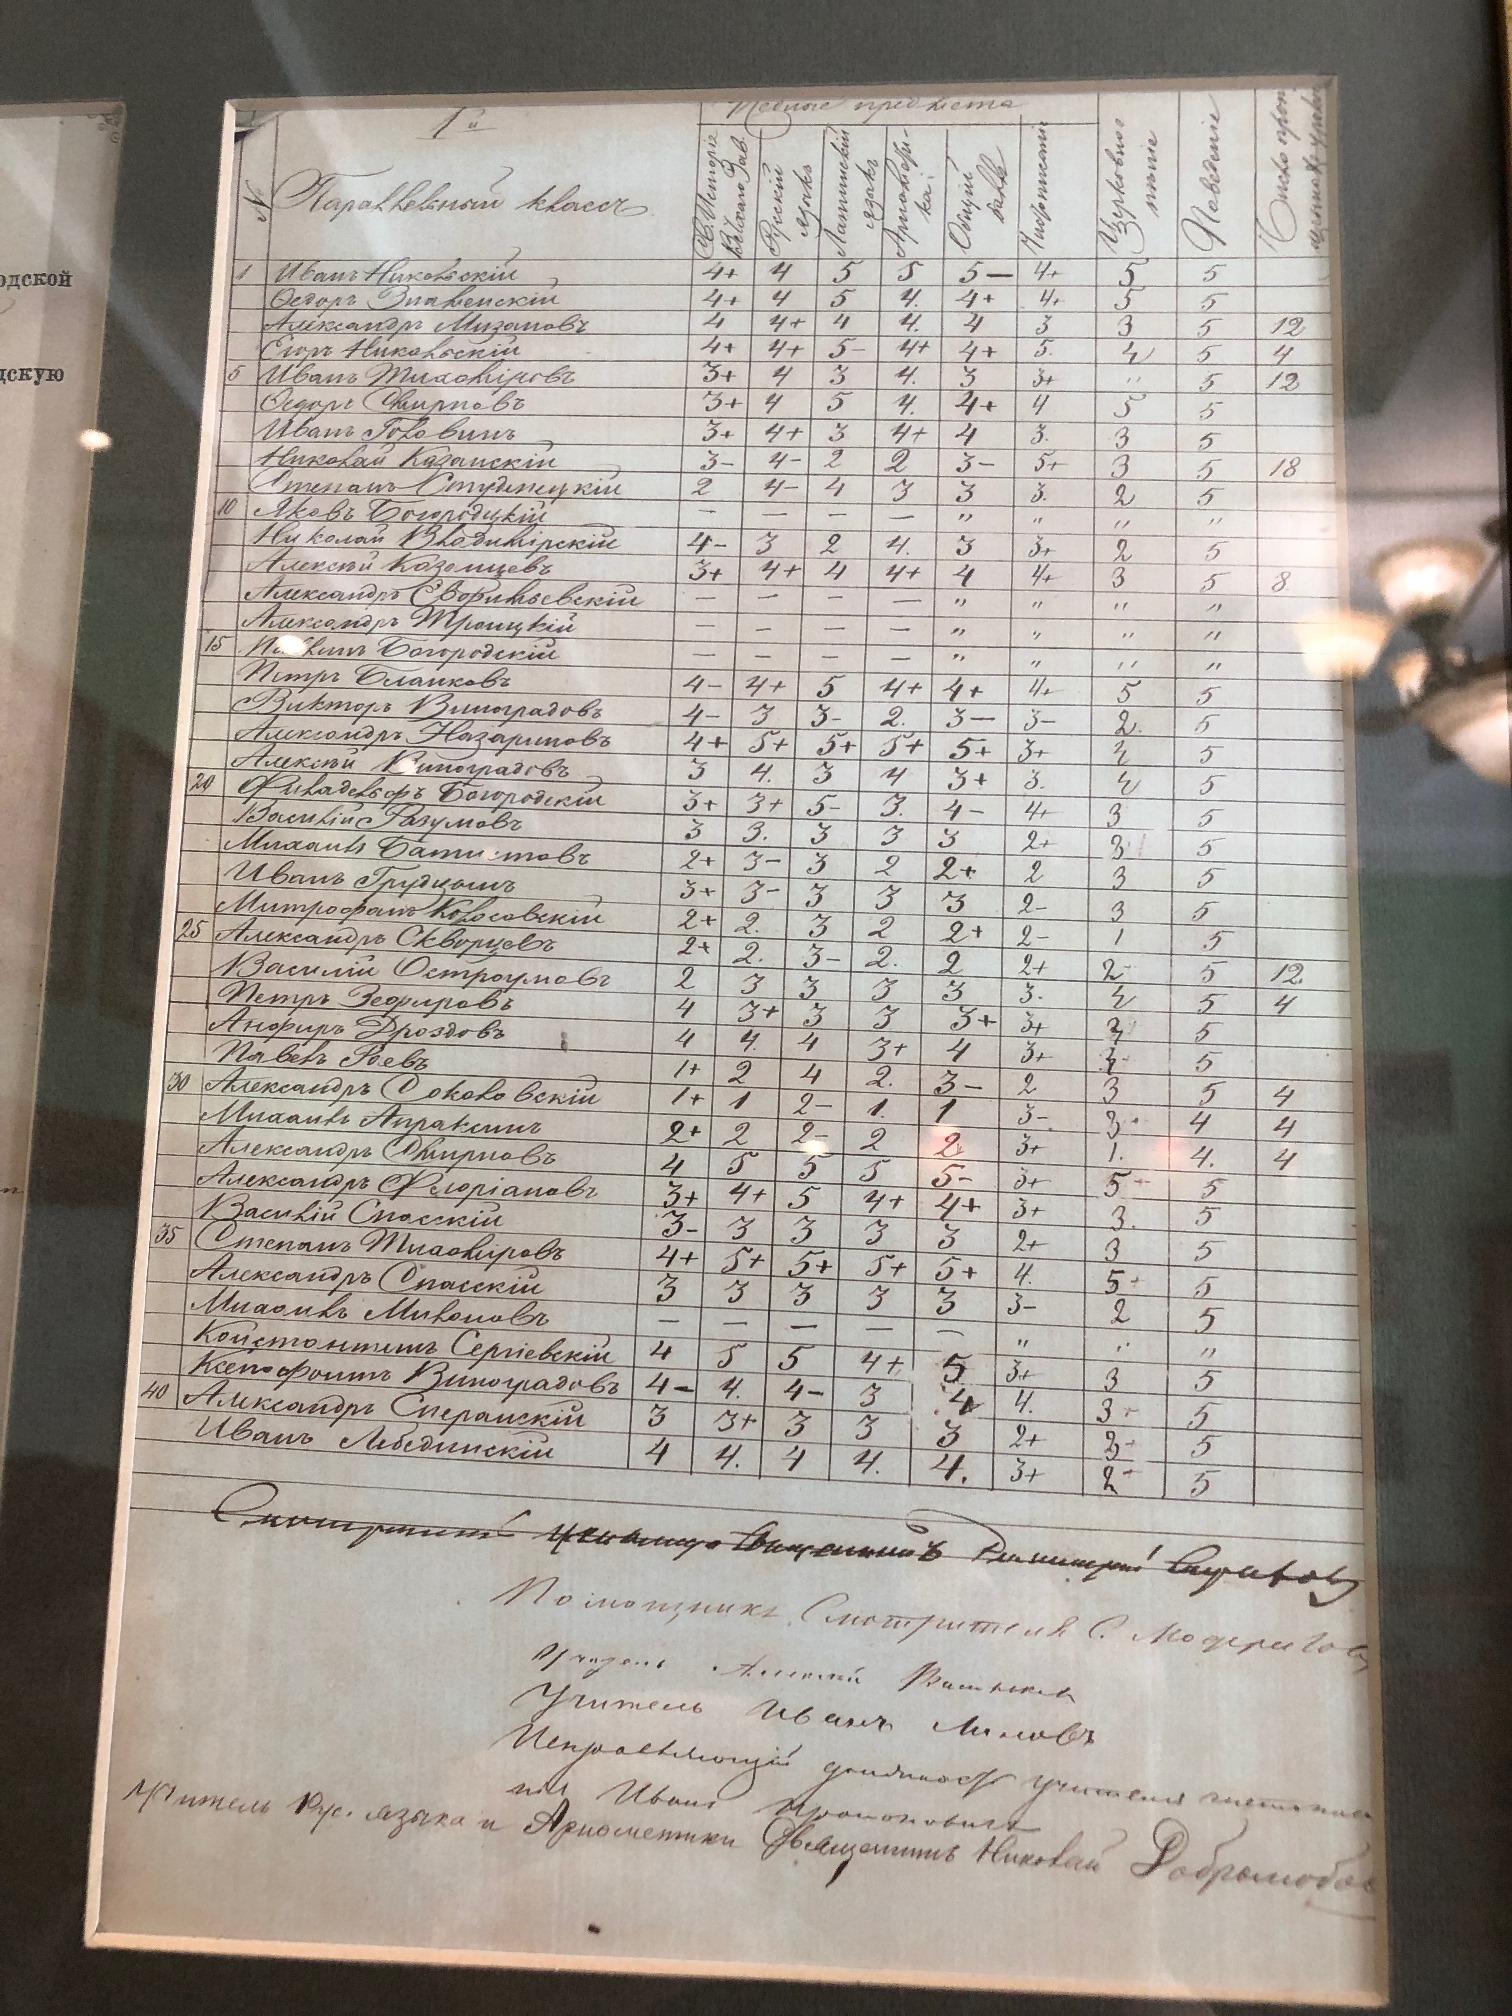 одской
дскую
1й
предмета
№ Параллельный классъ
С. Исторія Ветхаго Зав.
Русскій языкъ
Латинскій языкъ
Ариѳмети-ка
Общій баллъ
Чистописаніе
Церковное пѣніе
Поведеніе
Число
1 Иванъ Никольскій 4+ 4 5 5 5— 4+ 5 5
Ѳедоръ Знаменскій 4+ 4 5 4. 4+ 4+ 5 5
Александръ Мизановъ 4 4+ 4 4. 4 3 3 5 12
Егоръ Никольскій 4+ 4+ 5- 4+ 4+ 5. 4 5 4
5 Иванъ Тихоміровъ 3+ 4 3 4. 3 3+ " 5 12
Ѳедоръ Смирновъ 3+ 4 5 4. 4+ 4 5 5
Иванъ Головинъ 3+ 4+ 3 4+ 4 3. 3 5
Николай Казанскій 3- 4- 2 2 3- 5+ 3 5 18
Степанъ Студенецкій 2 4- 4 3 3 3. 2 5
10 Яковъ Богородцкій — — — — " " " "
Николай Владимірскій 4- 3 2 4. 3 3+ 2 5
Алексѣй Казанцевъ 3+ 4+ 4 4+ 4 4+ 3 5 8
Александръ — — — — " " " "
Александръ Троицкій — — — — " " " "
15 Богородскій — — — — " " " "
Петръ Бланковъ 4- 4+ 5 4+ 4+ 4+ 5 5
Викторъ Виноградовъ 4- 3 3- 2. 3— 3- 2. 5
Александръ Назариновъ 4+ 5+ 5+ 5+ 5+ 3+ 4 5
Алексѣй Виноградовъ 3 4. 3 4 3+ 3. 4 5
20 Филадельфъ Богородскій 3+ 3+ 5- 3. 4- 4+ 3 5
Василій Разумовъ 3 3. 3 3 3 2+ 3 5
Михаилъ 2+ 3- 3 2 2+ 2 3 5
Иванъ 3+ 3- 3 3 3 2- 3 5
Митрофанъ Колосовскій 2+ 2. 3 2 2+ 2- 1 5
25 Александръ Скворцовъ 2+ 2. 3- 2. 2 2+ 2- 5 12
Василій Остроумовъ 2 3 3 3 3 3. 4 5 4
Петръ Зефировъ 4 3+ 3 3 3+ 3+ 5
Анфиръ Дроздовъ 4 4. 4 3+ 4 3+ 5
Павелъ Роевъ 1+ 2 4 2. 3- 2 3 5 4
30 Александръ Соколовскій 1+ 1 2- 1. 1 3- 4 4
Михаилъ Апраксинъ 2+ 2 2- 2 2 3+ 1. 4. 4
Александръ Смирновъ 4 5 5 5 5- 3+ 5+ 5
Александръ Флоріановъ 3+ 4+ 5 4+ 4+ 3+ 3. 5
Василій Спасскій 3- 3 3 3 3 2+ 3 5
35 Степанъ Тихомировъ 4+ 5+ 5+ 5+ 5+ 4. 5+ 5
Александръ Спасскій 3 3 3 3 3 3- 2 5
Михаилъ Милоновъ — — — — — " " "
Константинъ Сергіевскій 4 5 5 4+ 5 3+ 3 5
Ксенофонтъ Виноградовъ 4- 4. 4- 3 4 4. 3+ 5
40 Александръ Сперанскій 3 3+ 3 3 3 2+ 5
Иванъ Лебединскій 4 4. 4 4. 4. 3+ 2+ 5
Смотритель училища Священникъ
Помощникъ Смотрителя С.
Учитель Алексѣй
Учитель Иванъ
Исправляющій должность учителя
Иванъ
Учитель Рус. языка и Ариѳметики Священникъ Николай Добролюбов